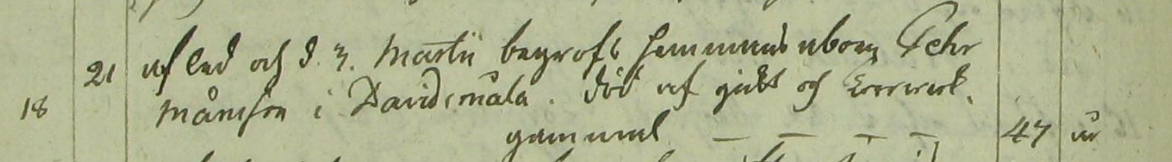 21 afled och d. 3. Martii begrofs hemmansåboen Pehr
18 Månsson i Davidsmåla. död af gikt och
gammal — — — — 47 år